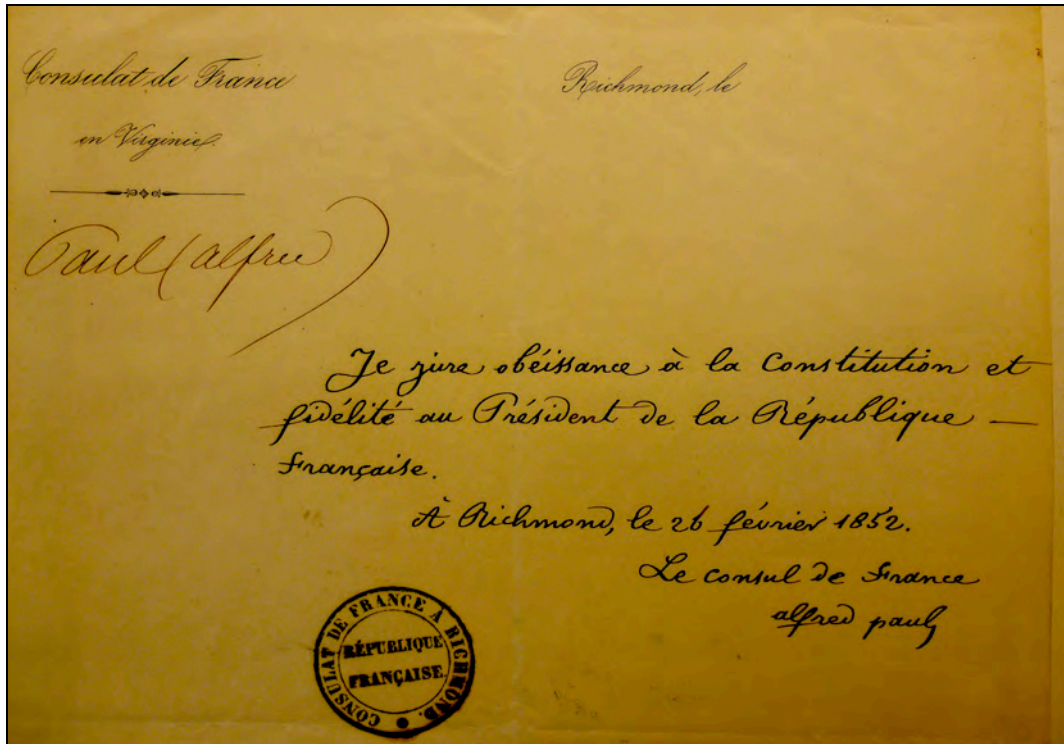 Consulat de France
en Virginie.
Richmond, le
Paul (alfred)
Je jure obéissance à la Constitution et
fidélité au Président de la République —
française.
À Richmond, le 26 février 1852.
Le consul de france
alfred paul
CONSULAT DE FRANCE À RICHMOND.
RÉPUBLIQUE
FRANÇAISE.